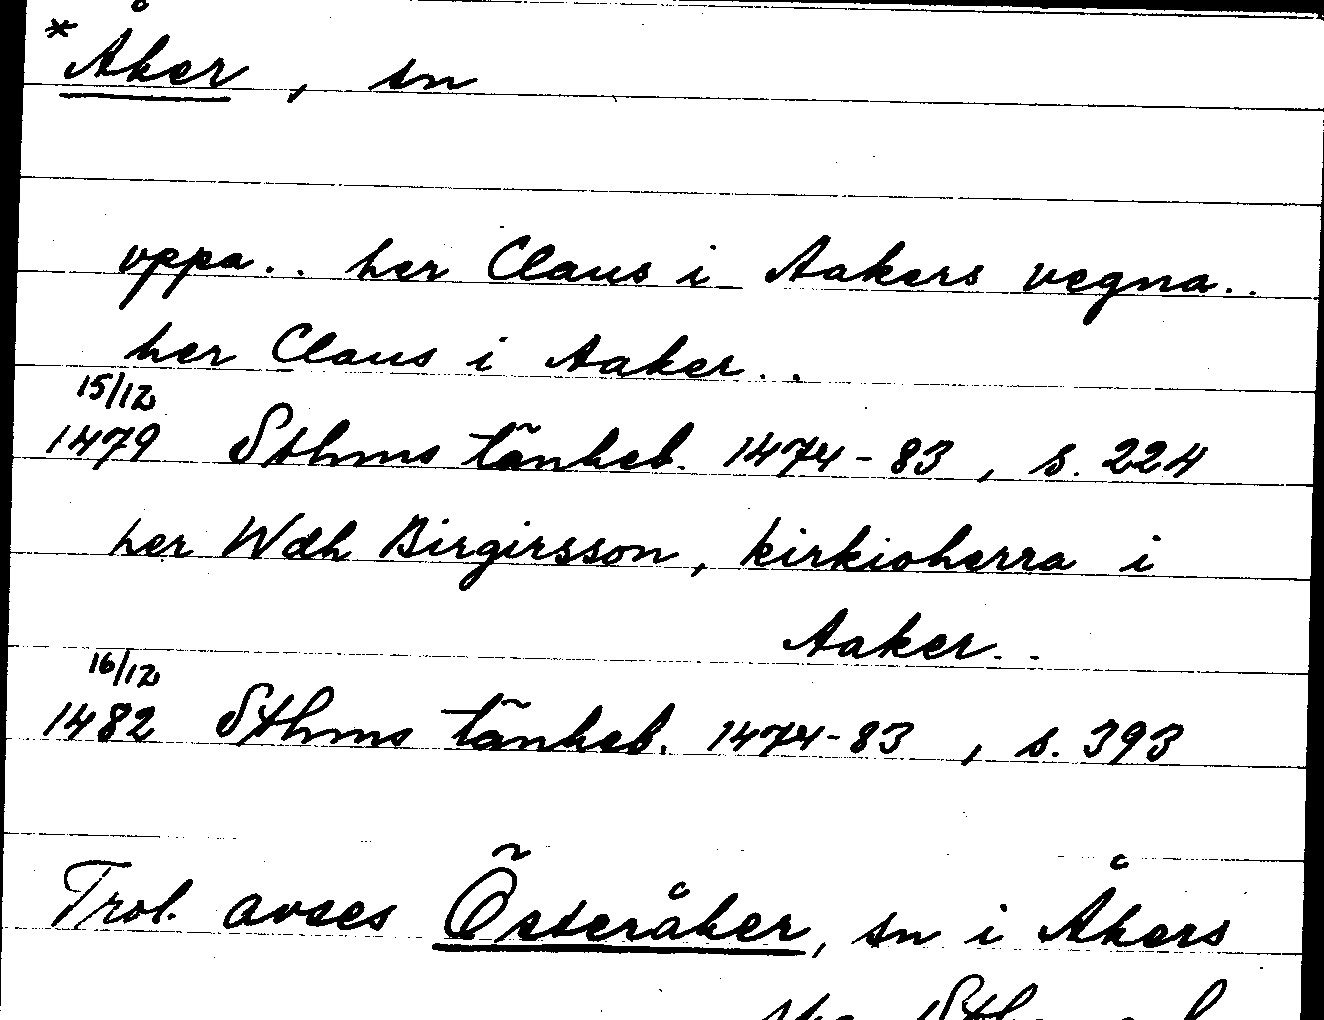 *Åker, sn
vppa.. her Claus i Aakers vegna..
her Claus i Aaker..
15/12
1479 Sthms tänkeb. 1474-83, s. 224
her Wdh Birgirsson, kirkioherra i
Aaker..
16/12
1482 Sthms tänkeb. 1474-83, s. 393
Trol. avses Österåker, sn i Åkers